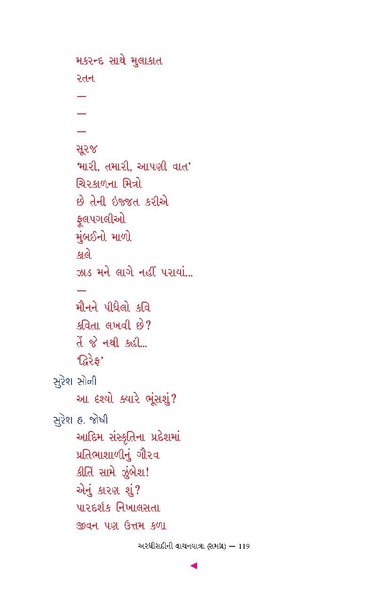 મકરન્દ સાથે મુલાકાત
રતન
—
—
—
સૂરજ
‘મારી, તમારી, આપણી વાત’
ચિરકાળના મિત્રો
છે તેની ઇજ્જત કરીએ
ફૂલપગલીઓ
મુંબઈનો માળો
કાલે
ઝાડ મને લાગે નહીં પરાયાં...
—
મૌનને પીધેલો કવિ
કવિતા લખવી છે?
તેં જે નથી કહી...
‘દ્વિરેફ’
સુરેશ સોની
આ દૃશ્યો ક્યારે ભૂંસશું?
સુરેશ હ. જોષી
આદિમ સંસ્કૃતિના પ્રદેશમાં
પ્રતિભાશાળીનું ગૌરવ
કીર્તિ સામે ઝુંબેશ!
એનું કારણ શું?
પારદર્શક નિખાલસતા
જીવન પણ ઉત્તમ કળા
અરધીસદીની વાચનયાત્રા (સમગ્ર) — 119